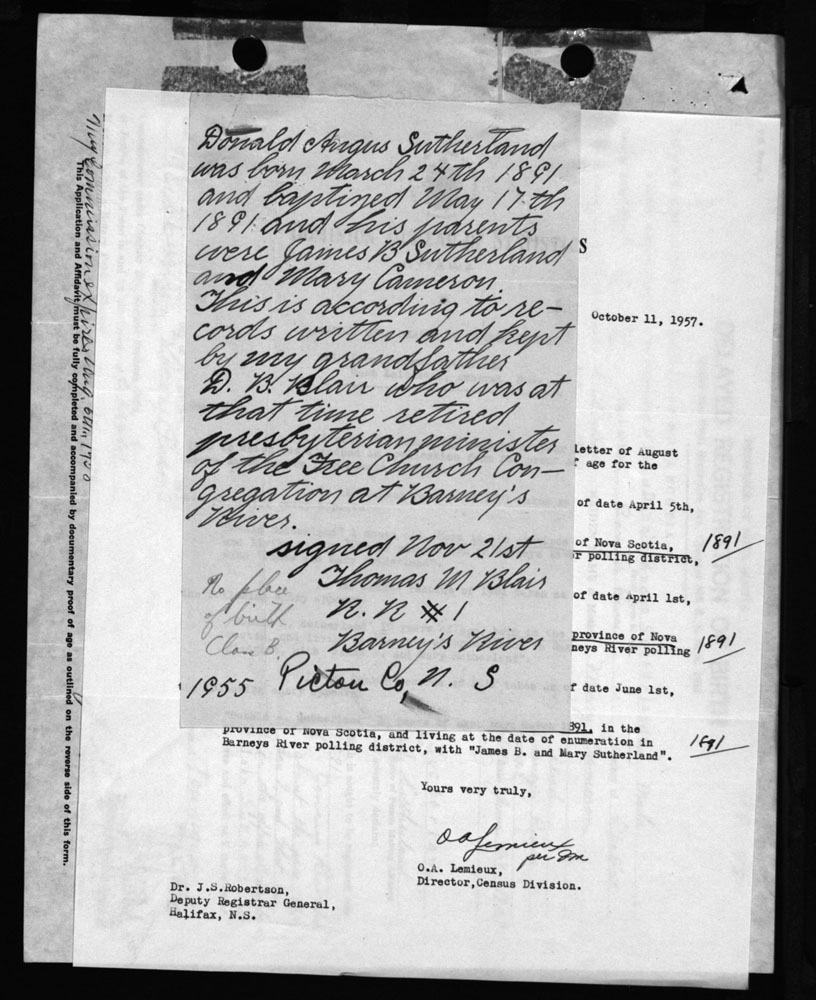 Donald Angus Sutherland
was born March 24th 1891
and baptized May 17th
1891 and his parents
were James B Sutherland
and Mary Cameron.
This is according to re-
cords written and kept
by my grandfather
D. B. Blair who was at
that time retired
presbyterian minister
of the Free Church Con-
gregation at Barney's
River.
signed Nov 21st
Thomas M Blair
R. R # 1
Barney's River
1955 Pictou Co, N. S
No place
of birth
Class B.
S
October 11, 1957.
letter of August
age for the
of date April 5th,
of Nova Scotia,
polling district,
1891
of date April 1st,
province of Nova
neys River polling
1891
date June 1st,
891, in the
province of Nova Scotia, and living at the date of enumeration in
Barneys River polling district, with "James B. and Mary Sutherland".
1891
Yours very truly,
O A Lemieux
per
O.A. Lemieux,
Director, Census Division.
Dr. J.S.Robertson,
Deputy Registrar General,
Halifax, N.S.
My Commission expires Aug. 6th, 1950
This Application and Affidavit must be fully completed and accompanied by documentary proof of age as outlined on the reverse side of this form.